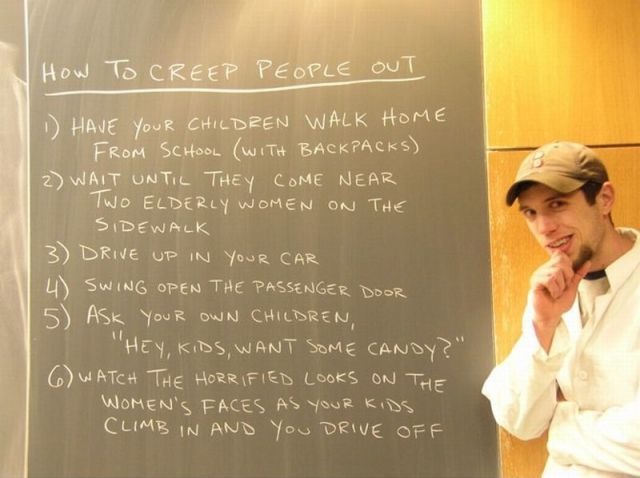 HOW TO CREEP PEOPLE OUT
1) HAVE YOUR CHILDREN WALK HOME
FROM SCHOOL (WITH BACKPACKS)
2) WAIT UNTIL THEY COME NEAR
TWO ELDERLY WOMEN ON THE
SIDEWALK
3) DRIVE UP IN YOUR CAR
4) SWING OPEN THE PASSENGER DOOR
5) ASK YOUR OWN CHILDREN,
"HEY, KIDS, WANT SOME CANDY?"
6) WATCH THE HORRIFIED LOOKS ON THE
WOMEN'S FACES AS YOUR KIDS
CLIMB IN AND YOU DRIVE OFF
B